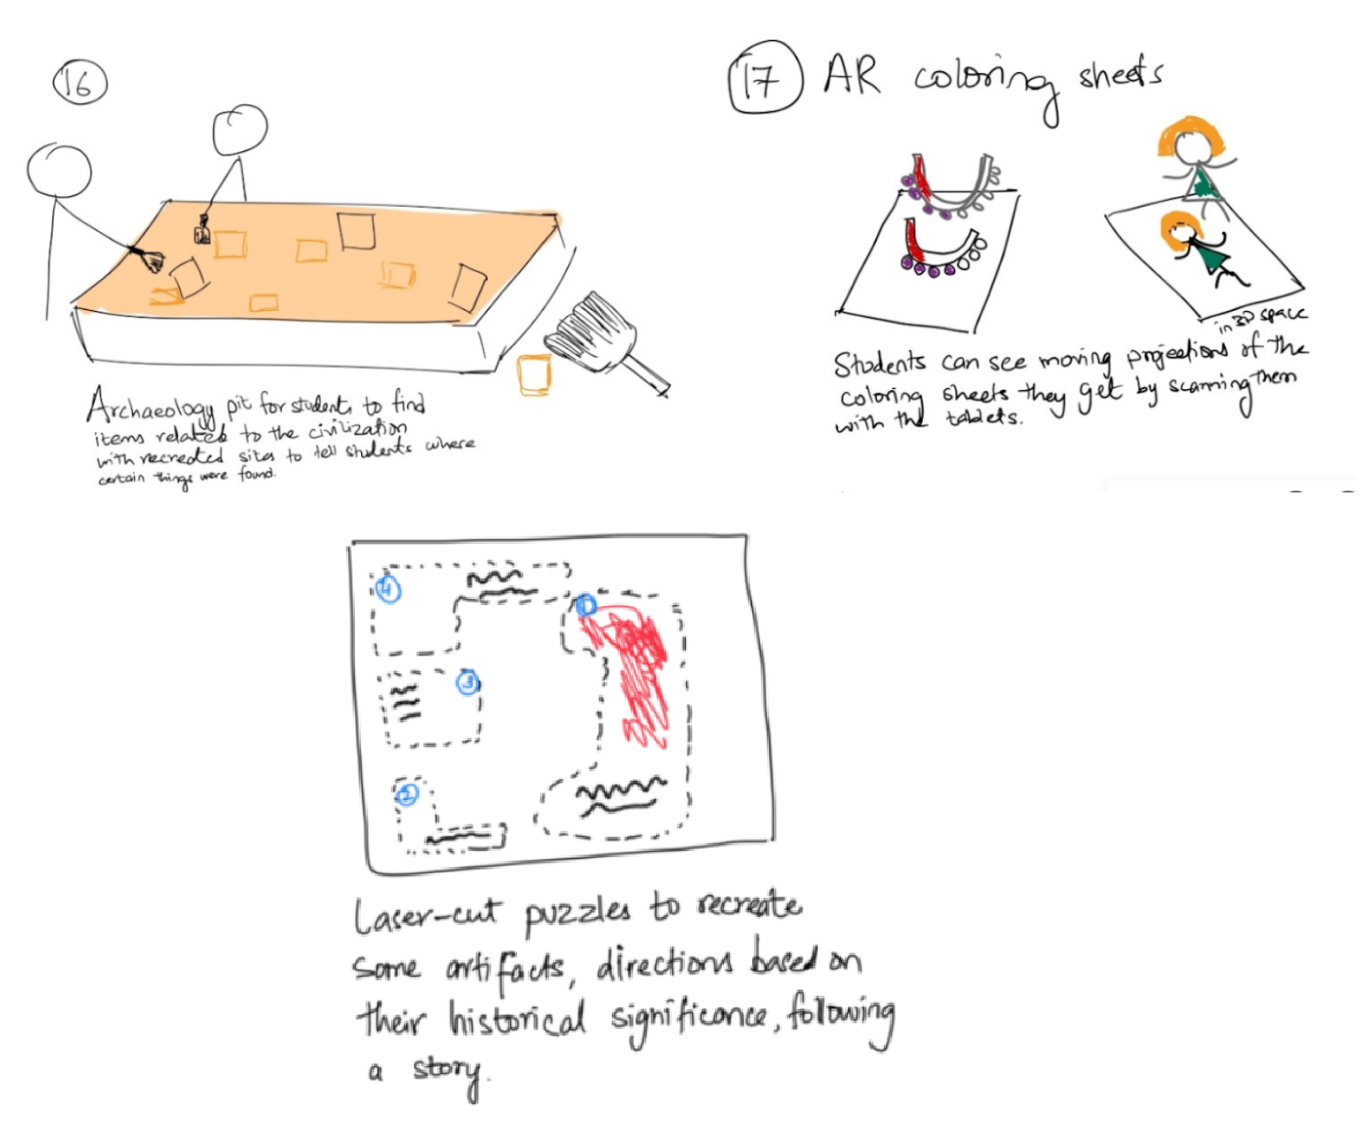 16
Archaeology pit for students to find
items related to the civilization
with recreated sites to tell students where
certain things were found.
17 AR coloring sheets
in 3D space
Students can see moving projections of the
coloring sheets they get by scanning them
with the tablets.
4
1
3
2
Laser-cut puzzles to recreate
some artifacts, directions based on
their historical significance, following
a story.